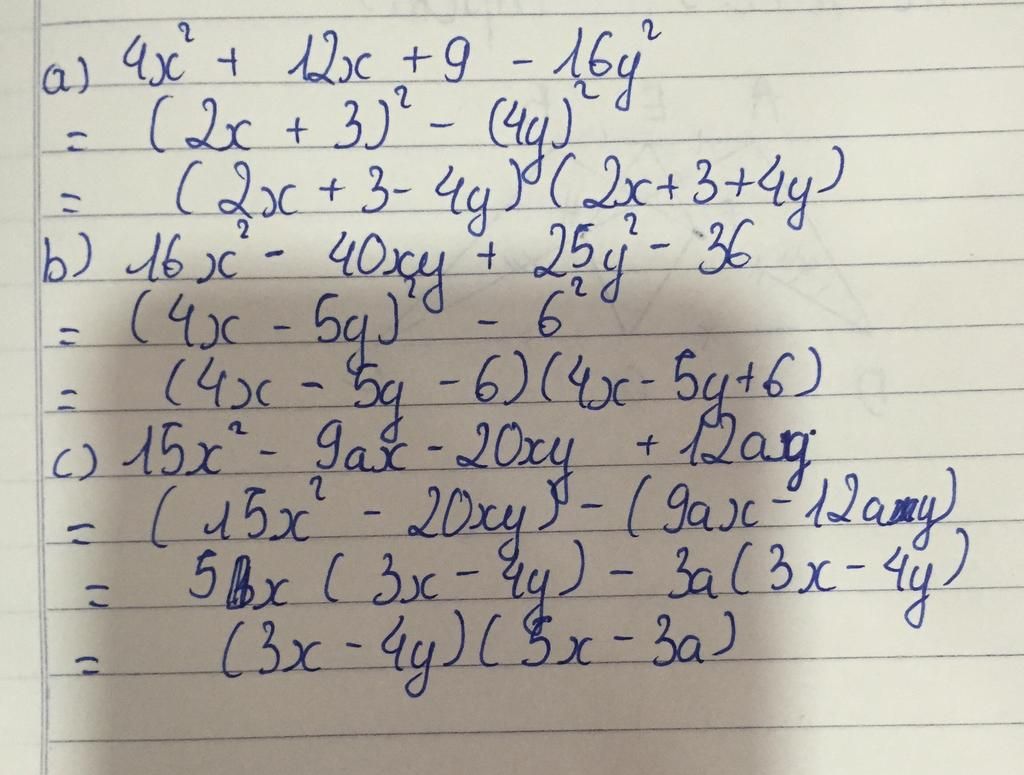 a) 4x² + 12x + 9 - 16y²
= (2x + 3)² - (4y)²
= (2x + 3 - 4y) (2x + 3 + 4y)
b) 16x² - 40xy + 25y² - 36
= (4x - 5y)² - 6²
= (4x - 5y - 6)(4x - 5y + 6)
c) 15x² - 9ax - 20xy + 12ay
= (15x² - 20xy) - (9ax - 12ay)
= 5x (3x - 4y) - 3a (3x - 4y)
= (3x - 4y)(5x - 3a)